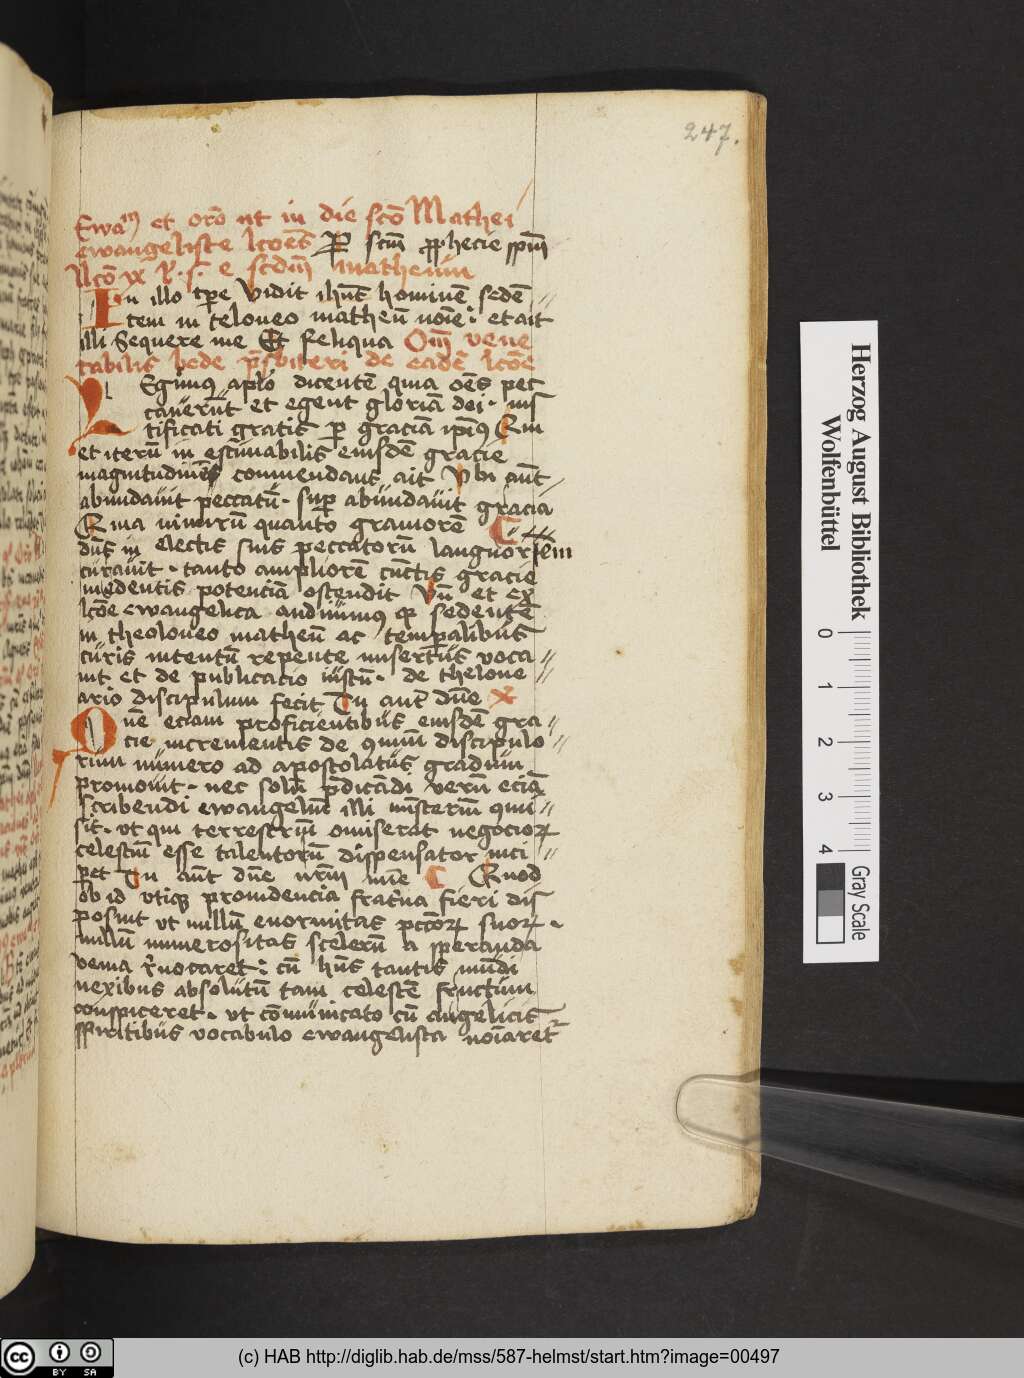 247.
Ewā et orō ut in die scō Mathei
ewangeliste lcōes P̄ scm̄ ꝓphecie sp̄m
llcō ix R. s. e scdm̄ matheum
In illo tp̄e Vidit ihūs hominē sedē //
tem in teloneo matheū noīe : et ait
illi Sequere me Et reliqua Om̄ vene
rabilis bede p̄sbiteri de eadē lcōe
LEgimus aplō dicentē quia oēs pec
cauerūt et egent gloriā dei · ius
tificati gratis p graciā ip̄ius Qui
et iterū in estimabilis eiusdē gracie
magnitudinēs comendans ait Vbi aūt /
abundauit peccatū · sup abūndauit gracia
Quia nimirū quanto grauiorē C
dūs in electis suis peccatorū languorem
curauit · tanto ampliorē cūctis gracie
medentis potenciā ostendit Vn̄ et ex
lcōe ewangelica audiuimus qꝫ sedentē
in theoloneo matheū ac temporalibus
curis intentū repente misertus voca //
uit et de publicatio iustū · de thelone //
ario discipulum fecit Tu aut dn̄e R
Quē eciam proficientibus eiusdē gra //
cie incrementis de qmuni discipulo //
rum numero ad apostolatus gradum
promouit · nec solū p̄dicādi verū eciā
scribendi ewangeliū illi misteriū qmi //
sit · vt qui terrestriū omiserat negocioꝝ
celestiū esse talentorū dispensator inci //
pet Tu aūt dn̄e nrm̄ mīe C Quod
ob id vtiqꝫ prouidencia fratna fieri dis
posuit vt nullū enormitas pctōrꝝ suoꝝ ·
nullū numerositas scelerū a speranda
venia r̄uocaret : cū hūs tantis mūdi
nexibus absolutū tam celestē fructum
conspiceret · vt cōmunicato cū angelicis
spiritibus vocabulo ewangelista noīaret
Herzog August Bibliothek
Wolfenbüttel
0 1 2 3 4
Gray Scale
cc BY SA
(c) HAB http://diglib.hab.de/mss/587-helmst/start.htm?image=00497